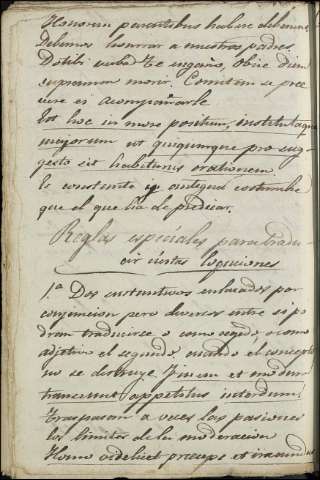 Honorem parentibus habere debemus
Debemos honrrar a nuestros padres.
Dotibi verba Te engaño, Obire diem
supremum morir. Comitem se pre
vere es acompañarle
Est hoc in more positum, institutoque
majorum ut quicumque pro sug-
gesto sit habiturus orationem.
Es constante y antigua costumbre
que el que ha de predicar.
Reglas especiales para tradu-
cir ciertas locuciones
1.ª Dos sustantivos enlazados por
conjuncion pero diversos entre si po
dran traducirse o como regido o como
adjetivo el segundo cuando el concepto
no se destruye. Finem et modum
transeunt appetitus interdum
Traspasan a veces las pasiones
los limites de la moderacion
Homo videlicet preceps et iracundus